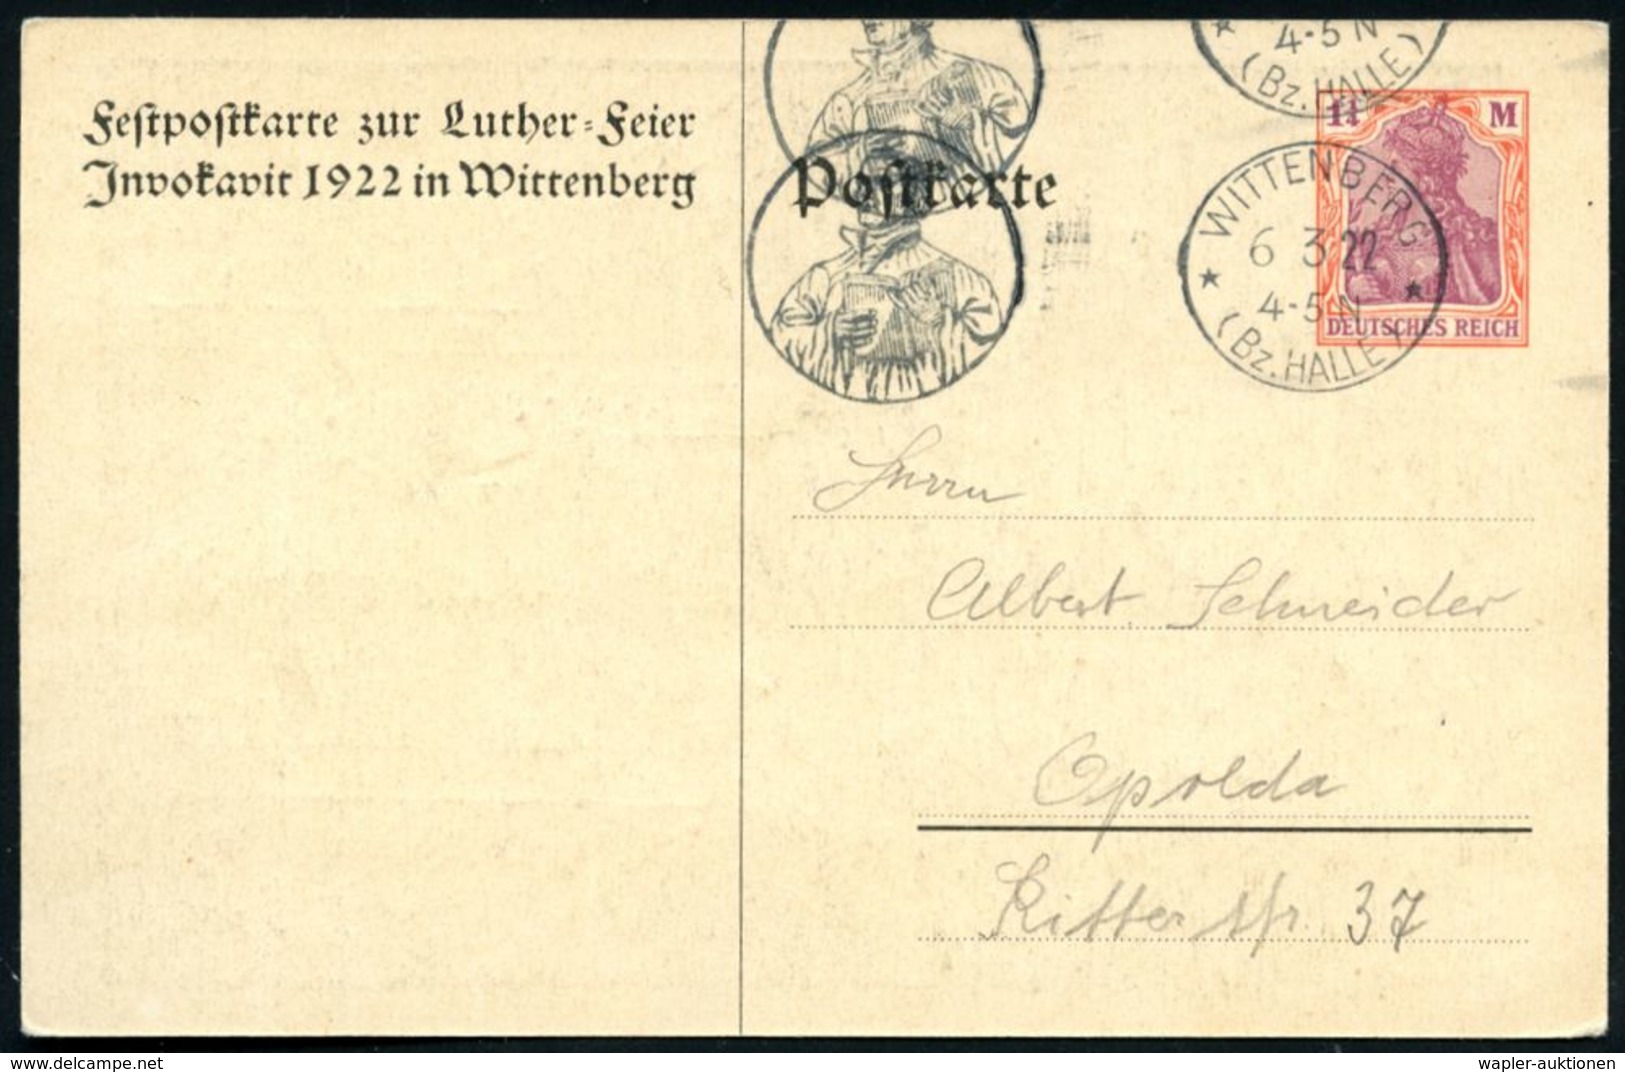 Festpostkarte zur Luther-Feier
Invokavit 1922 in Wittenberg
Postkarte
4-5 N
(Bz. HALLE)
1¼ M
WITTENBERG
6 3.22
4-5 N
(Bz. HALLE)
DEUTSCHES REICH
Herrn
Albert Schneider
Apolda
Ritterstr. 37
delcampe.net
wapler-auktionen